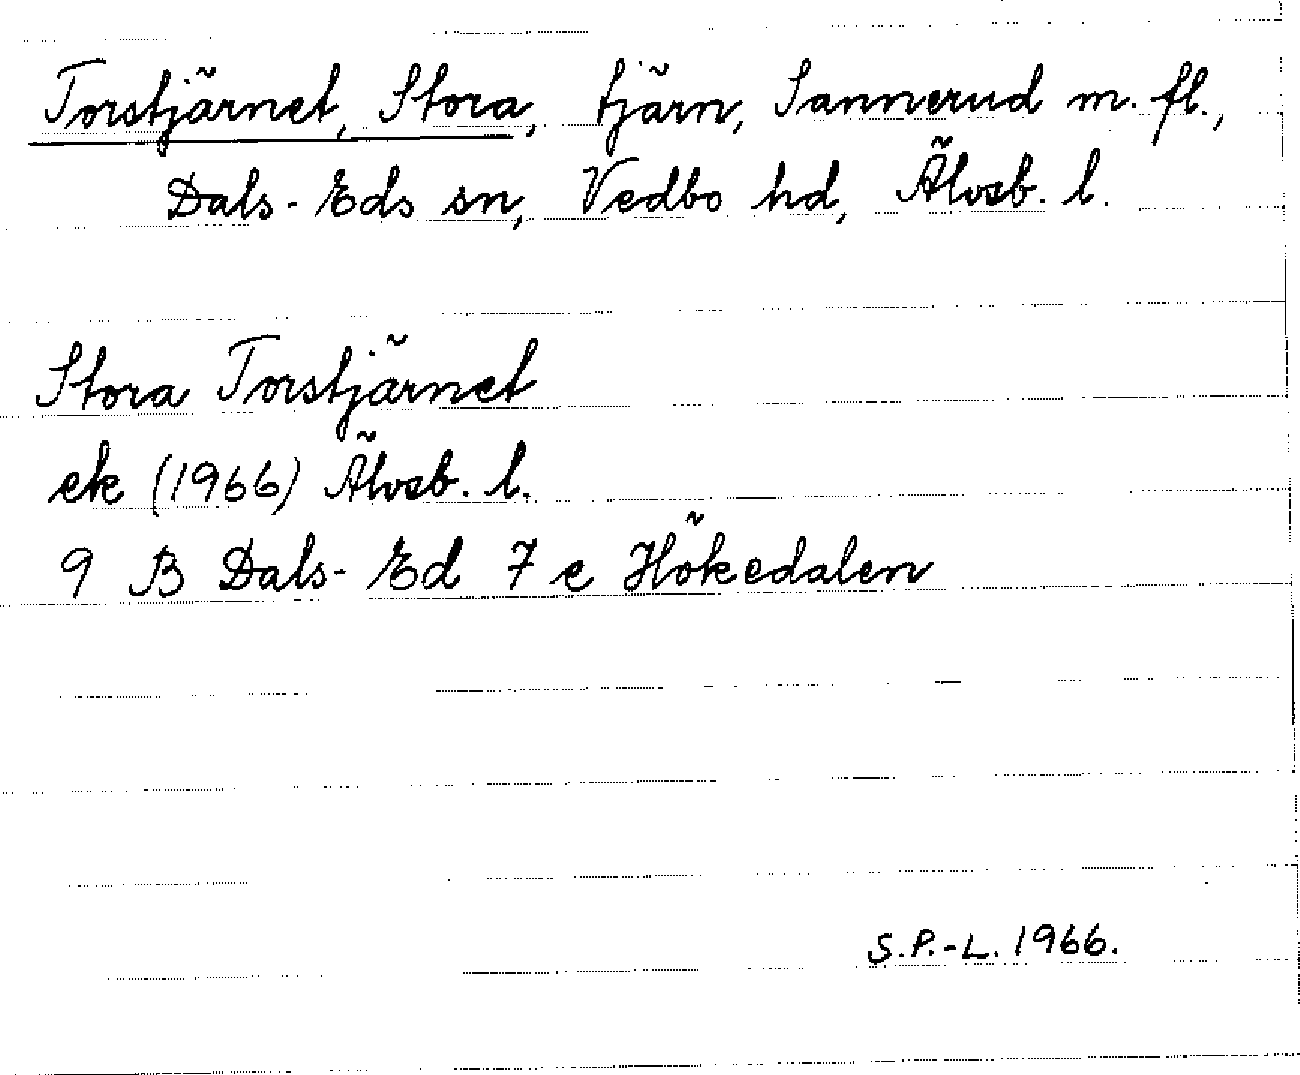 Torstjärnet, Stora, tjärn, Sannerud m. fl.,
Dals-Eds sn, Vedbo hd, Älvsb. l.
Stora Torstjärnet
ek (1966) Älvsb. l.
9 B Dals-Ed 7 e Hökedalen
S.P.-L. 1966.